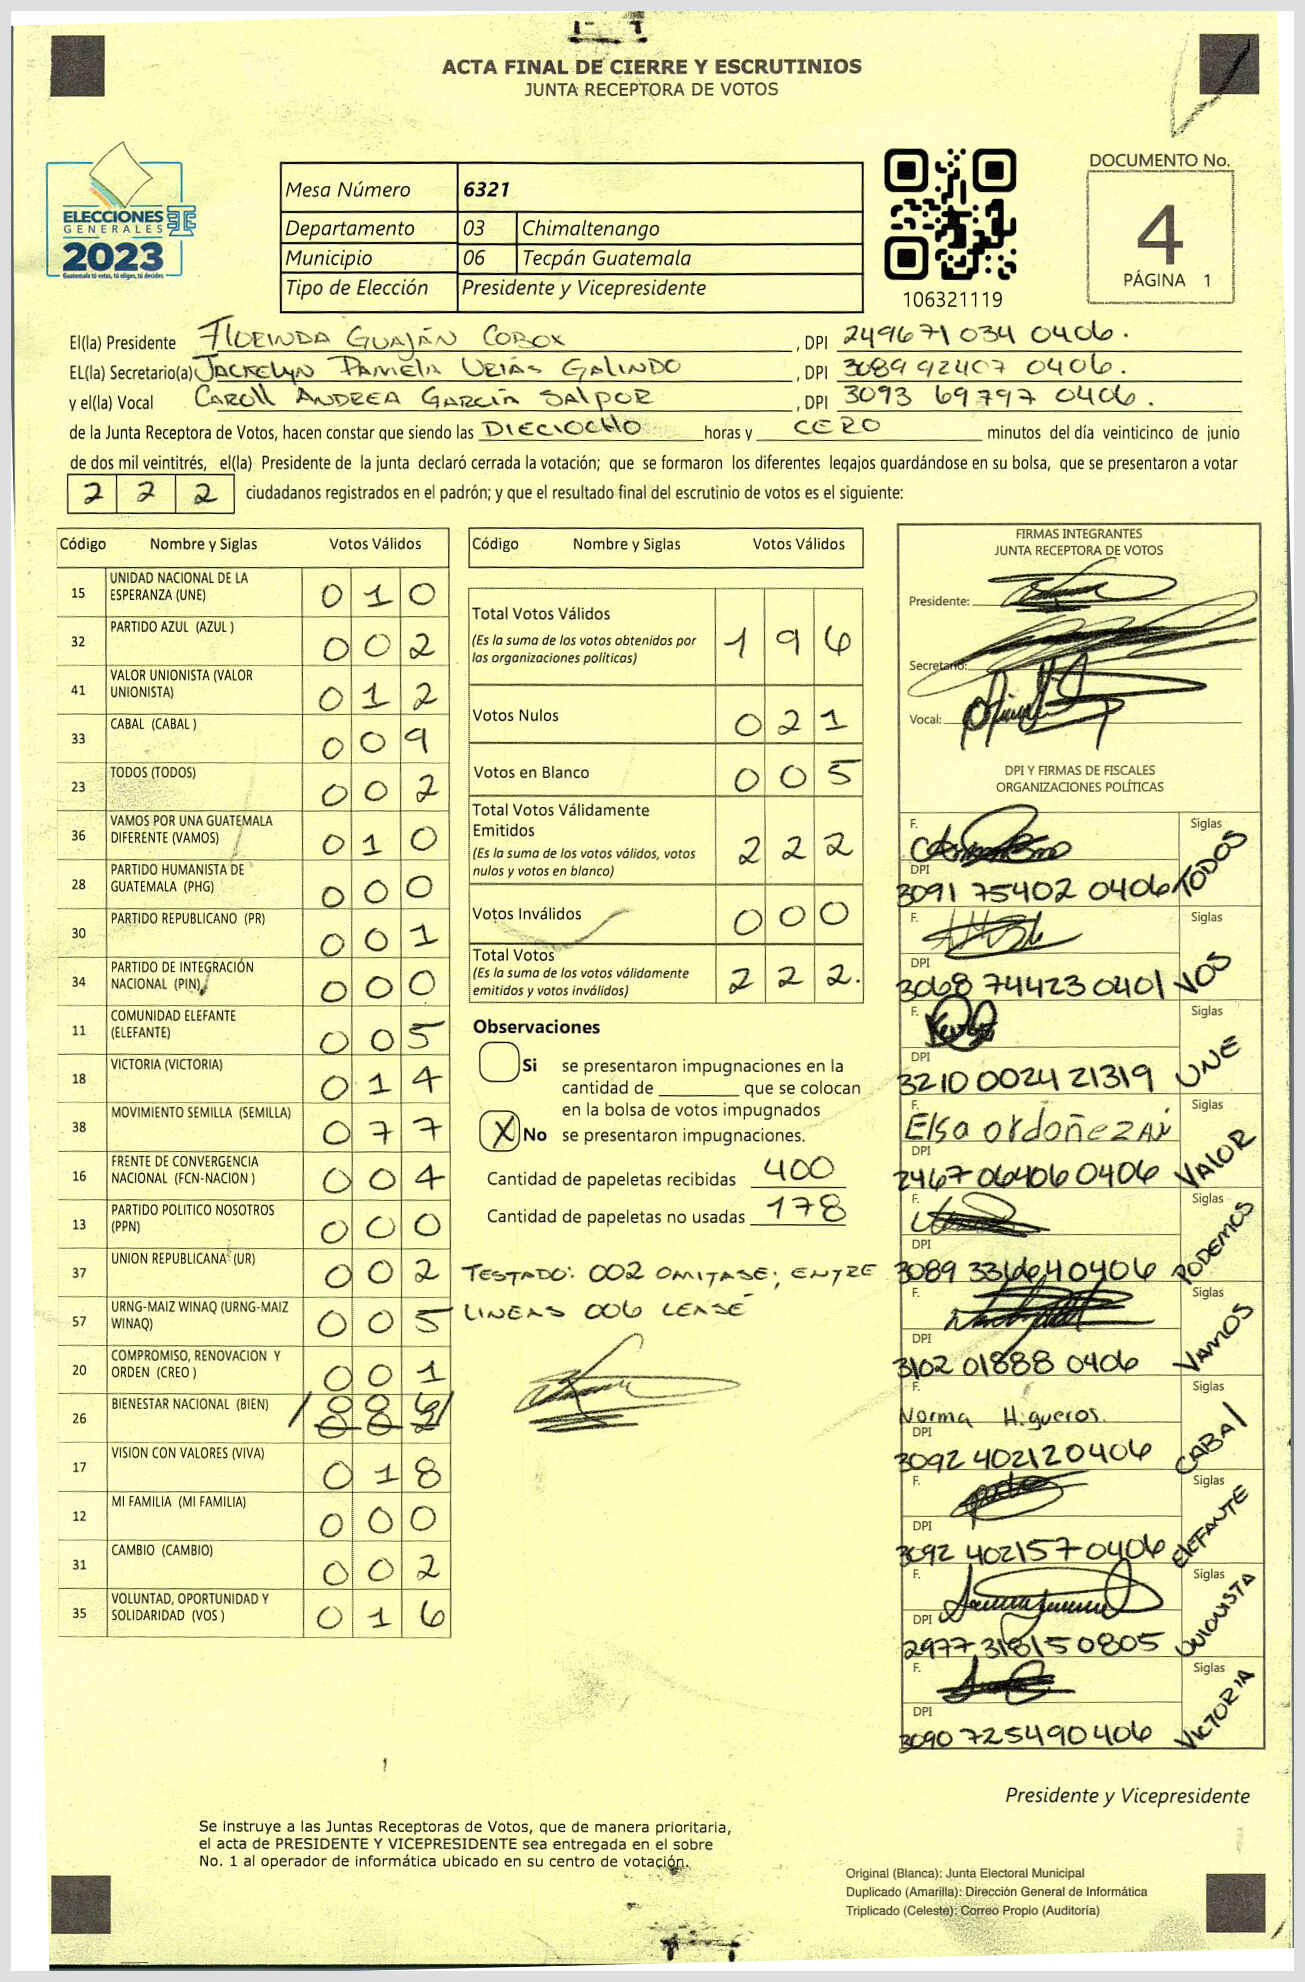 ACTA FINAL DE CIERRE Y ESCRUTINIOS
JUNTA RECEPTORA DE VOTOS
ELECCIONES
GENERALES
2023
Guatemala tú votas, tú eliges, tú decides
Mesa Número 6321
Departamento 03 Chimaltenango
Municipio 06 Tecpán Guatemala
Tipo de Elección Presidente y Vicepresidente
106321119
DOCUMENTO No.
4
PÁGINA 1
El(la) Presidente FLORINDA GUAJÁN COBOX, DPI 249671034 0406.
EL(la) Secretario(a) JACKELYN PAMELA URÍAS GALINDO, DPI 308992407 0406.
y el(la) Vocal CAROLL ANDREA GARCÍA SALPOR, DPI 3093 69797 0406.
de la Junta Receptora de Votos, hacen constar que siendo las DIECIOCHO horas y CERO minutos del día veinticinco de junio
de dos mil veintitrés, el(la) Presidente de la junta declaró cerrada la votación; que se formaron los diferentes legajos guardándose en su bolsa, que se presentaron a votar
2 2 2 ciudadanos registrados en el padrón; y que el resultado final del escrutinio de votos es el siguiente:
Código Nombre y Siglas Votos Válidos
15 UNIDAD NACIONAL DE LA ESPERANZA (UNE) 0 1 0
32 PARTIDO AZUL (AZUL ) 0 0 2
41 VALOR UNIONISTA (VALOR UNIONISTA) 0 1 2
33 CABAL (CABAL ) 0 0 9
23 TODOS (TODOS) 0 0 2
36 VAMOS POR UNA GUATEMALA DIFERENTE (VAMOS) 0 1 0
28 PARTIDO HUMANISTA DE GUATEMALA (PHG) 0 0 0
30 PARTIDO REPUBLICANO (PR) 0 0 1
34 PARTIDO DE INTEGRACIÓN NACIONAL (PIN) 0 0 0
11 COMUNIDAD ELEFANTE (ELEFANTE) 0 0 5
18 VICTORIA (VICTORIA) 0 1 4
38 MOVIMIENTO SEMILLA (SEMILLA) 0 7 7
16 FRENTE DE CONVERGENCIA NACIONAL (FCN-NACION ) 0 0 4
13 PARTIDO POLITICO NOSOTROS (PPN) 0 0 0
37 UNION REPUBLICANA (UR) 0 0 2
57 URNG-MAIZ WINAQ (URNG-MAIZ WINAQ) 0 0 5
20 COMPROMISO, RENOVACION Y ORDEN (CREO ) 0 0 1
26 BIENESTAR NACIONAL (BIEN)
17 VISION CON VALORES (VIVA) 0 1 8
12 MI FAMILIA (MI FAMILIA) 0 0 0
31 CAMBIO (CAMBIO) 0 0 2
35 VOLUNTAD, OPORTUNIDAD Y SOLIDARIDAD (VOS ) 0 1 6
Código Nombre y Siglas Votos Válidos
Total Votos Válidos 1 9 6
(Es la suma de los votos obtenidos por
las organizaciones políticas)
Votos Nulos 0 2 1
Votos en Blanco 0 0 5
Total Votos Válidamente
Emitidos 2 2 2
(Es la suma de los votos válidos, votos
nulos y votos en blanco)
Votos Inválidos 0 0 0
Total Votos 2 2 2.
(Es la suma de los votos válidamente
emitidos y votos inválidos)
Observaciones
Si se presentaron impugnaciones en la
cantidad de ________ que se colocan
en la bolsa de votos impugnados
X No se presentaron impugnaciones.
Cantidad de papeletas recibidas 400
Cantidad de papeletas no usadas 178
TESTADO: 002 OMITASE; ENTRE
LINEAS 006 LEASE
FIRMAS INTEGRANTES
JUNTA RECEPTORA DE VOTOS
Presidente:
Secretario:
Vocal:
DPI Y FIRMAS DE FISCALES
ORGANIZACIONES POLÍTICAS
F. Siglas
DPI
3091 75402 0406 TODOS
F. Siglas
DPI
3068 74423 0401 VOS
F. Siglas
DPI
3210 00242 1319 UNE
F. Elsa Ordoñez Siglas
DPI
2467 06406 0406 VALOR
F. Siglas
DPI
3089 33664 0406 PODEMOS
F. Siglas
DPI
3102 01888 0406 VAMOS
F. Siglas
Norma Higueros.
DPI
3092 40212 0406 CABAL
F. Siglas
DPI
3092 40215 7 0406 ELEFANTE
F. Siglas
DPI
2977 31815 0805 UNIONISTA
F. Siglas
DPI
3090 72549 0406 VICTORIA
Presidente y Vicepresidente
Se instruye a las Juntas Receptoras de Votos, que de manera prioritaria,
el acta de PRESIDENTE Y VICEPRESIDENTE sea entregada en el sobre
No. 1 al operador de informática ubicado en su centro de votación.
Original (Blanca): Junta Electoral Municipal
Duplicado (Amarilla): Dirección General de Informática
Triplicado (Celeste): Correo Propio (Auditoría)